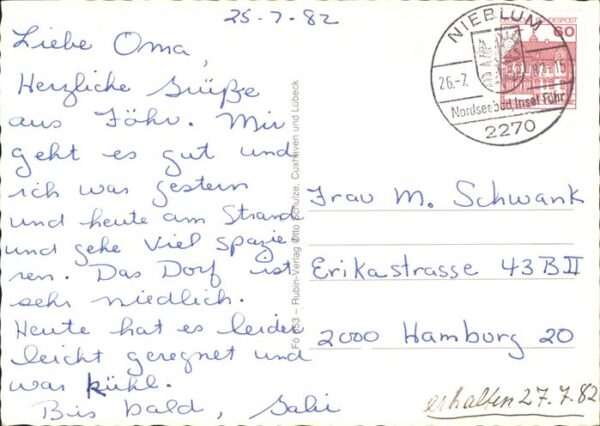 25.7.82
Liebe Oma,
Herzliche Grüße
aus Föhr. Mir
geht es gut und
ich war gestern
und heute am Strand
und gehe viel spazie
ren. Das Dorf ist
sehr niedlich.
Heute hat es leider
leicht geregnet und
war kühl.
Bis bald, Gabi
Rubin-Verlag Otto Schulze, Cuxhaven und Lübeck
NIEBLUM
26.-7.
Nordseebad, Insel Föhr
2270
60
Frau M. Schwank
Erikastrasse 43 B II
2000 Hamburg 20
erhalten 27.7.82